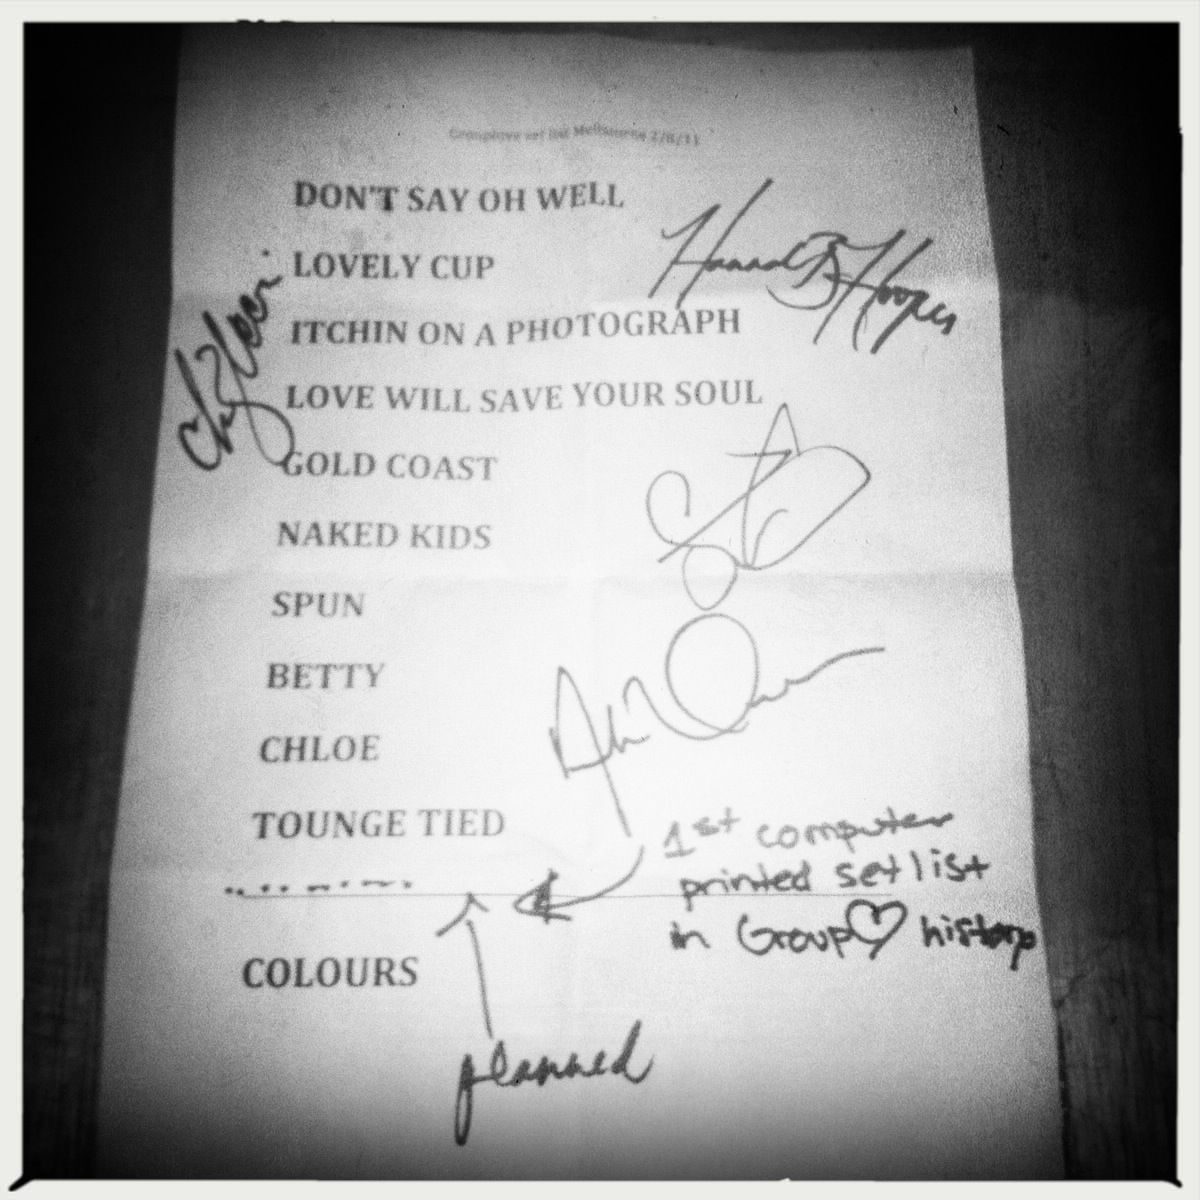 Grouplove set list Melbourne 2/8/11
DON'T SAY OH WELL
LOVELY CUP
Hannah Hooper
ITCHIN ON A PHOTOGRAPH
LOVE WILL SAVE YOUR SOUL
GOLD COAST
NAKED KIDS
SPUN
BETTY
CHLOE
TOUNGE TIED
1st computer
printed setlist
in Group♡ history
COLOURS
planned